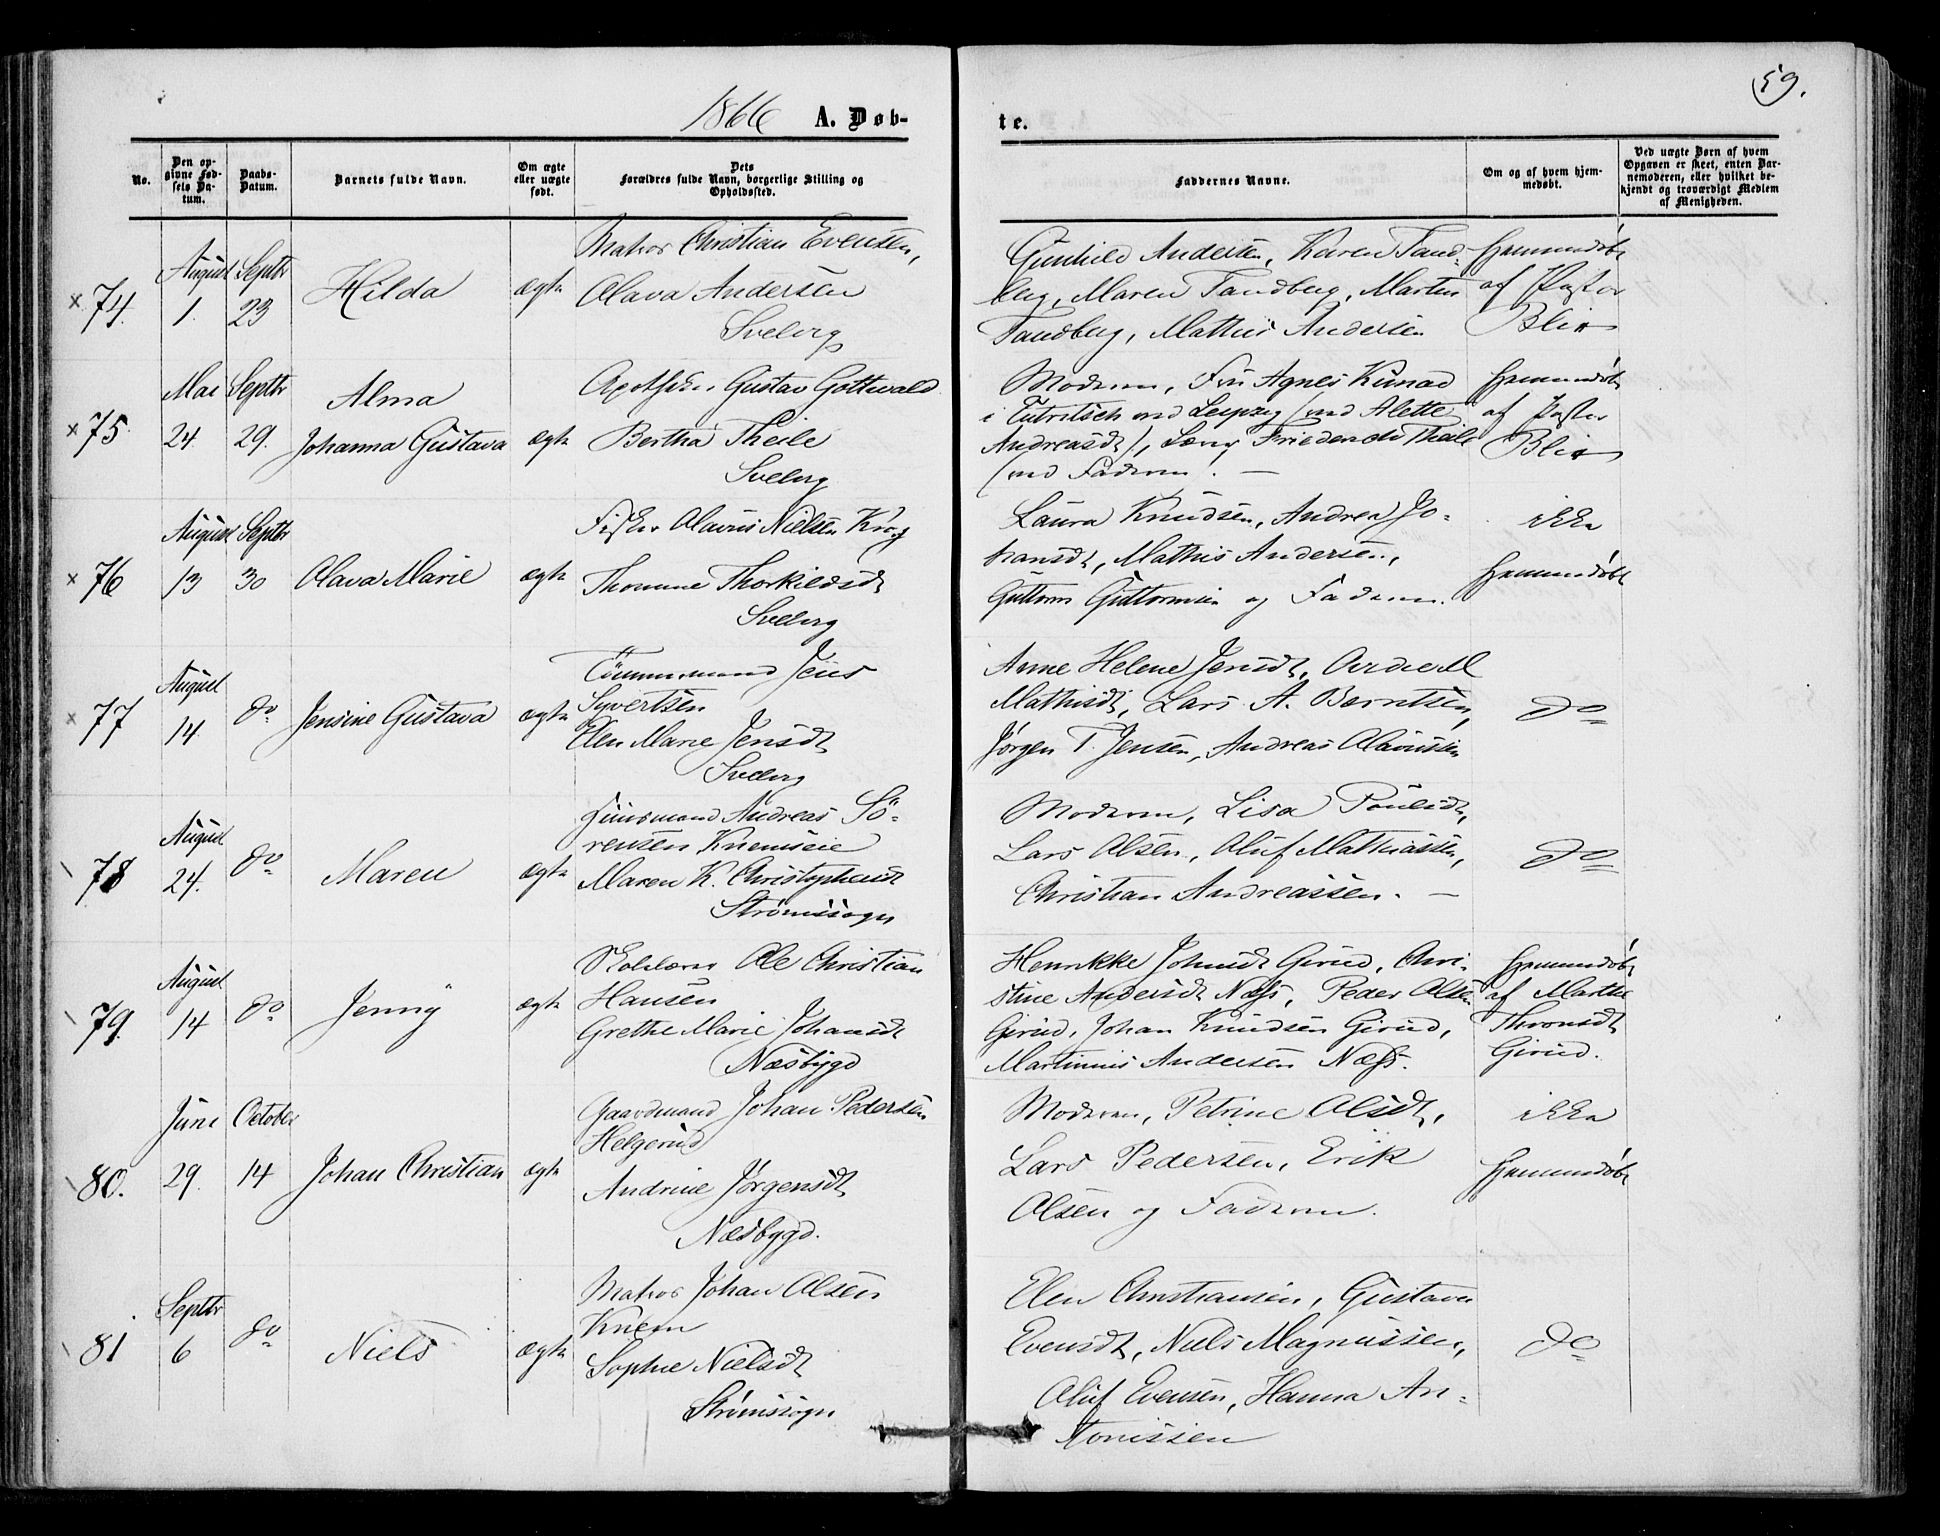 59.
1866 A. Døb-
te.
No.
Den op-
givne Fød-
sels Da-
tum.
Daabs-
Datum.
Barnets fulde Navn.
Om ægte
eller uægte
født.
Dets
Forældres fulde Navn, borgerlige Stilling og
Opholdssted.
Faddernes Navne.
Om og af hvem hjem-
medøbt.
Ved uægte Børn af hvem
Opgaven er skeet, enten Bar-
nemoderen, eller hvilket be-
kjendt og troværdigt Medlem
af Menigheden.
× 74.
August
1.
Septbr
23
Hilda
ægte
Matros Christian Evensen,
Olava Andersen
Svelvig
Gunhild Andersen, Karen Tand-
berg, Maren Tandberg, Marten
Tandberg, Mathis Andersen
Hjemmedøbt
af Pastor
Blix
× 75.
Mai
24.
Septbr
29.
Alma
Johanna Gustava
ægte
Apotheker Gustav Gottwald
Bertha Theile
Svelvig
Moderen, Fru Agnes Kunad
i Eutritsch ved Leipzig (ved Alette
Andreasdt), Friederich Theile
(ved Faderen). —
Hjemmedøbt
af Pastor
Blix
× 76
August
13
Septbr
30
Olava Marie
ægte
Fisker Olavus Nielsen Krog
Thomine Thorkildsdt
Svelvig
Laura Knudsen, Andrea Jo-
hansdt, Mathis Andersen,
Guttorm Guttormsen og Faderen.
ikke
hjemmedøbt
× 77
August
14.
do
Jensine Gustava
ægte
Tømmermand Jens
Syvertsen
Elen Marie Jensdt
Svelvig
Anne Helene Jensdt,
Mathisdt, Lars A. Berntsen,
Jørgen T. Jensen, Andreas Olavussen
do
78
August
24.
do
Maren
ægte
Huusmand Andreas Sö-
rensen Knemseie
Maren K. Christophersdt
Strømssogn
Moderen, Lisa Poulsdt,
Lars Olsen, Oluf Mathiassen,
Christian Andreassen. —
do
79.
August
14
do
Jenny
ægte
Skolelærer Ole Christian
Hansen
Grethe Marie Johansdt
Næsbygd
Henrikke Johnsdt Girud, Chri-
stine Andersdt Næss, Peder Olsen
Girud, Johan Knudsen Girud,
Martinius Andersen Næss.
Hjemmedøbt
af Marthe
Thronsdt
Girud.
80.
Juni
29.
October
14
Johan Christian
ægte
Gaardmand Johan Pedersen
Helgerud
Andrine Jørgensdt
Næsbygd.
Moderen, Petrine Olsdt,
Lars Pedersen, Erik
Olsen og Faderen.
ikke
hjemmedøbt
81
Septbr
6
do
Niels
ægte
Matros Johan Olsen
Knem
Sophie Nielsdt
Strømssogn
Elen Christiansen, Gustava
Evensdt, Niels Magnussen,
Oluf Evensen, Hanna An-
tonissen
do